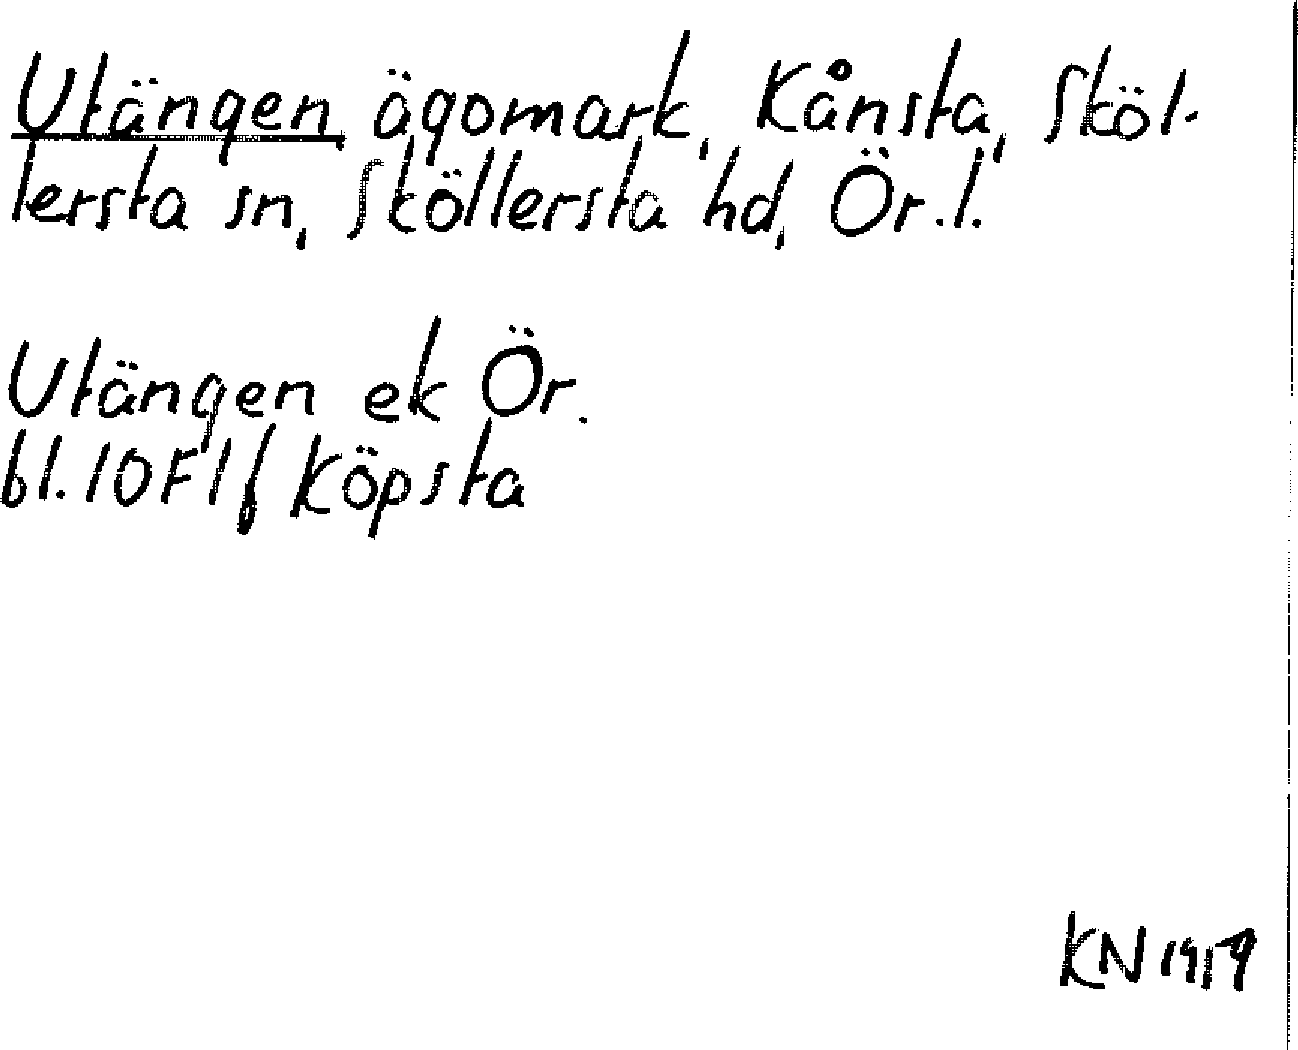 Utängen, ägomark, Kånsta, Sköl-
lersta sn, Sköllersta hd, Ör.l.
Utängen ek Ör.
bl. 10F1f Köpsta
KN